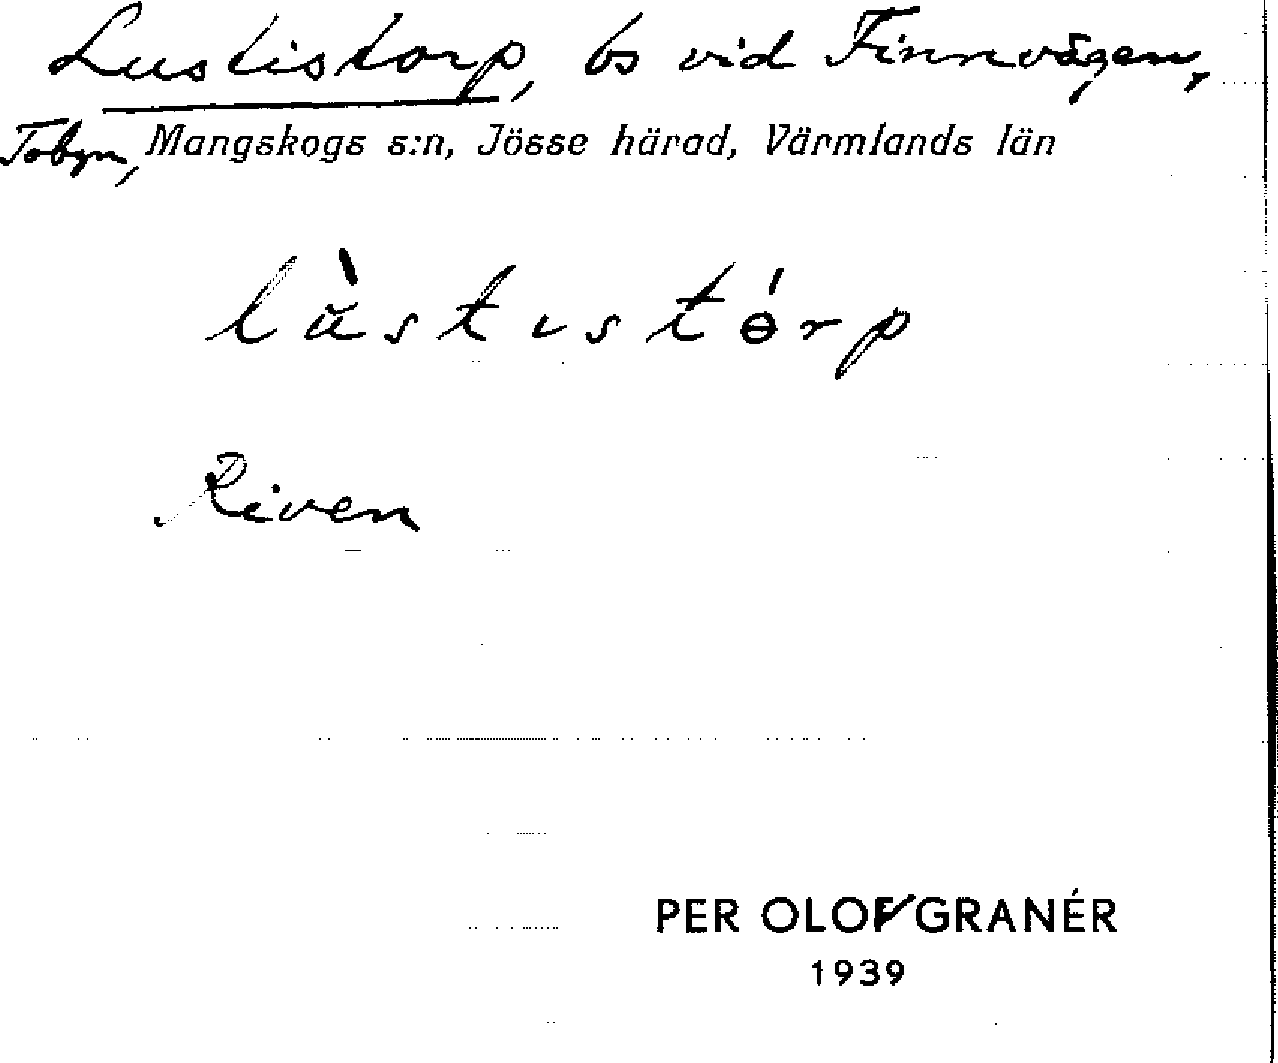 Lustistorp, bs vid Finnvägen,
Tobyn, Mangskogs s:n, Jösse härad, Värmlands län
lùstıstɵ́rp
Riven
PER OLOF GRANÉR
1939